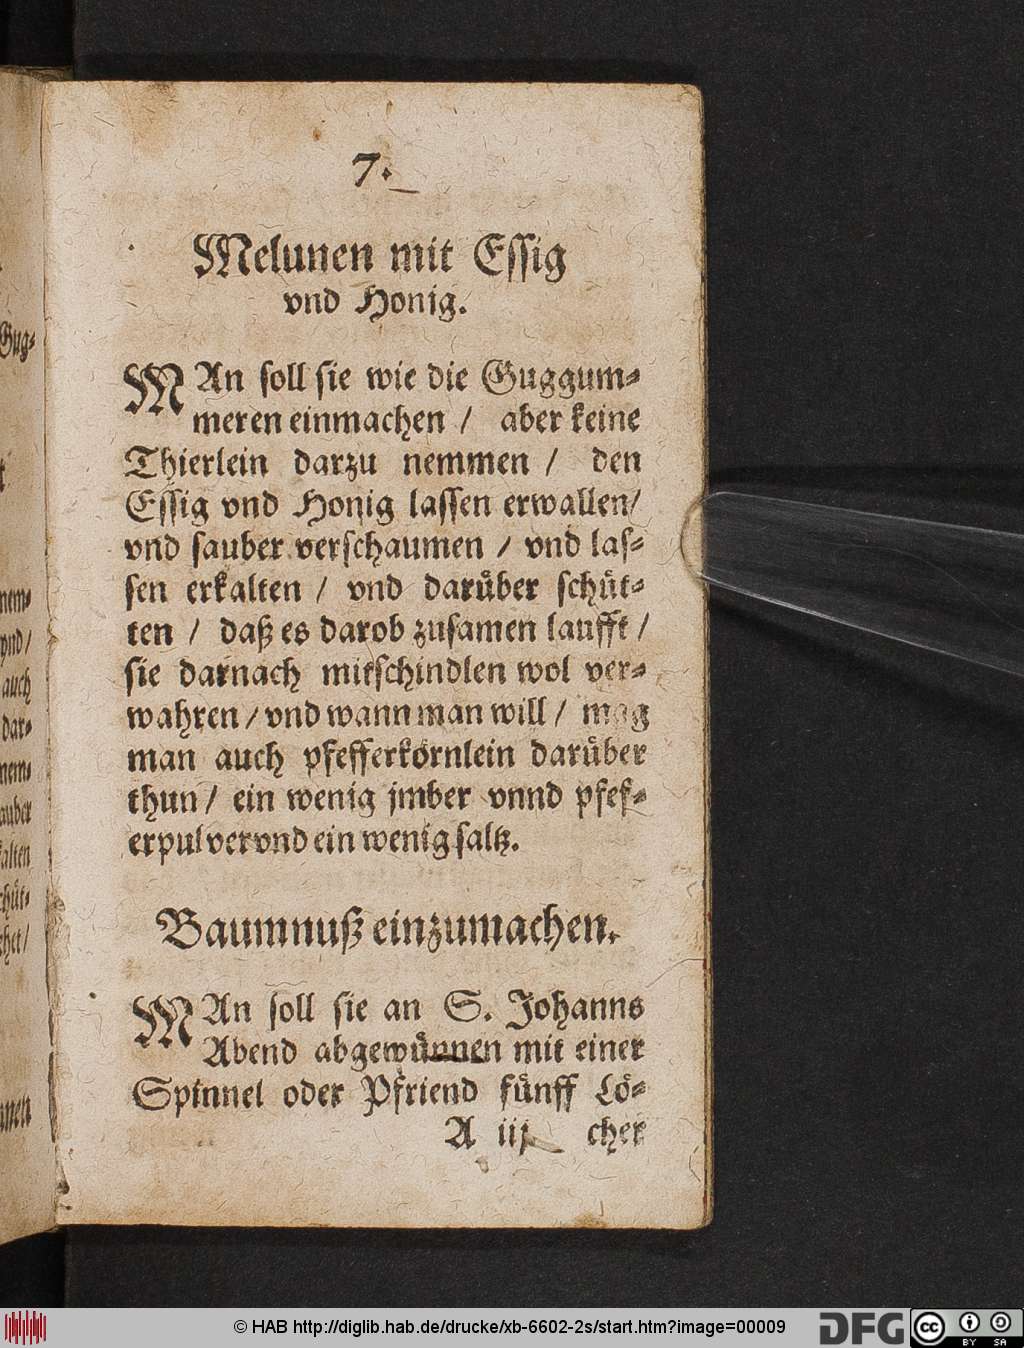 7.
Melunen mit Essig
vnd Honig.
MAn soll sie wie die Guggum-
meren einmachen / aber keine
Thierlein darzu nemmen / den
Essig vnd Honig lassen erwallen/
vnd sauber verschaumen / vnd las-
sen erkalten / vnd darüber schüt-
ten / daß es darob zusamen laufft /
sie darnach mitschindlen wol ver-
wahren / vnd wann man will / mag
man auch pfefferkörnlein darüber
thun / ein wenig jmber vnnd pfef-
erpulver vnd ein wenig saltz.
Baumnuß einzumachen.
MAn soll sie an S. Johanns
Abend abgewünnen mit einer
Spinnel oder Pfriend fünff Lö-
A iij cher
Gug-
nem-
vnd/
auch
dar-
nem-
auber
kalten
chüt-
chet/
© HAB http://diglib.hab.de/drucke/xb-6602-2s/start.htm?image=00009
DFG
cc
BY SA